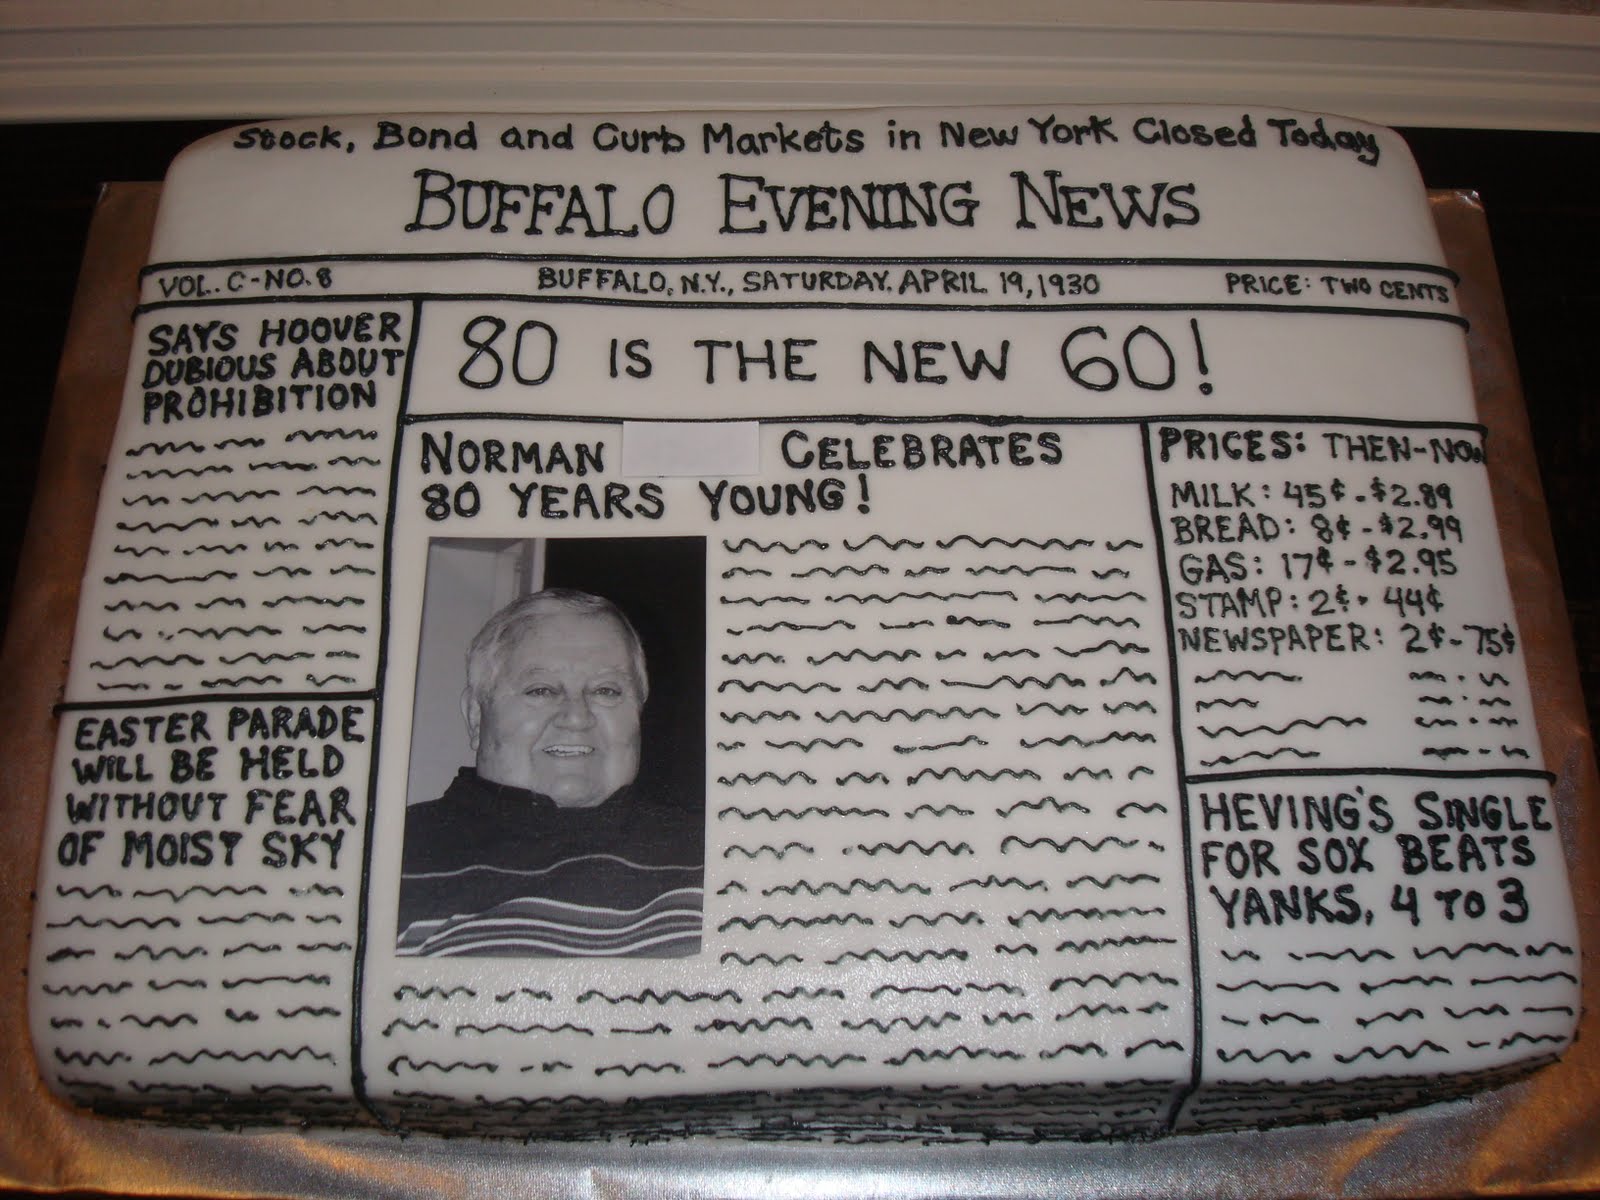 Stock, Bond and Curb Markets in New York Closed Today
BUFFALO EVENING NEWS
VOL. C-NO. 8 BUFFALO, N.Y., SATURDAY, APRIL 19, 1930 PRICE: TWO CENTS
SAYS HOOVER
DUBIOUS ABOUT
PROHIBITION
EASTER PARADE
WILL BE HELD
WITHOUT FEAR
OF MOIST SKY
80 IS THE NEW 60!
NORMAN CELEBRATES
80 YEARS YOUNG!
PRICES: THEN-NOW
MILK: 45¢-$2.89
BREAD: 8¢-$2.99
GAS: 17¢-$2.95
STAMP: 2¢-44¢
NEWSPAPER: 2¢-75¢
HEVING'S SINGLE
FOR SOX BEATS
YANKS, 4 TO 3